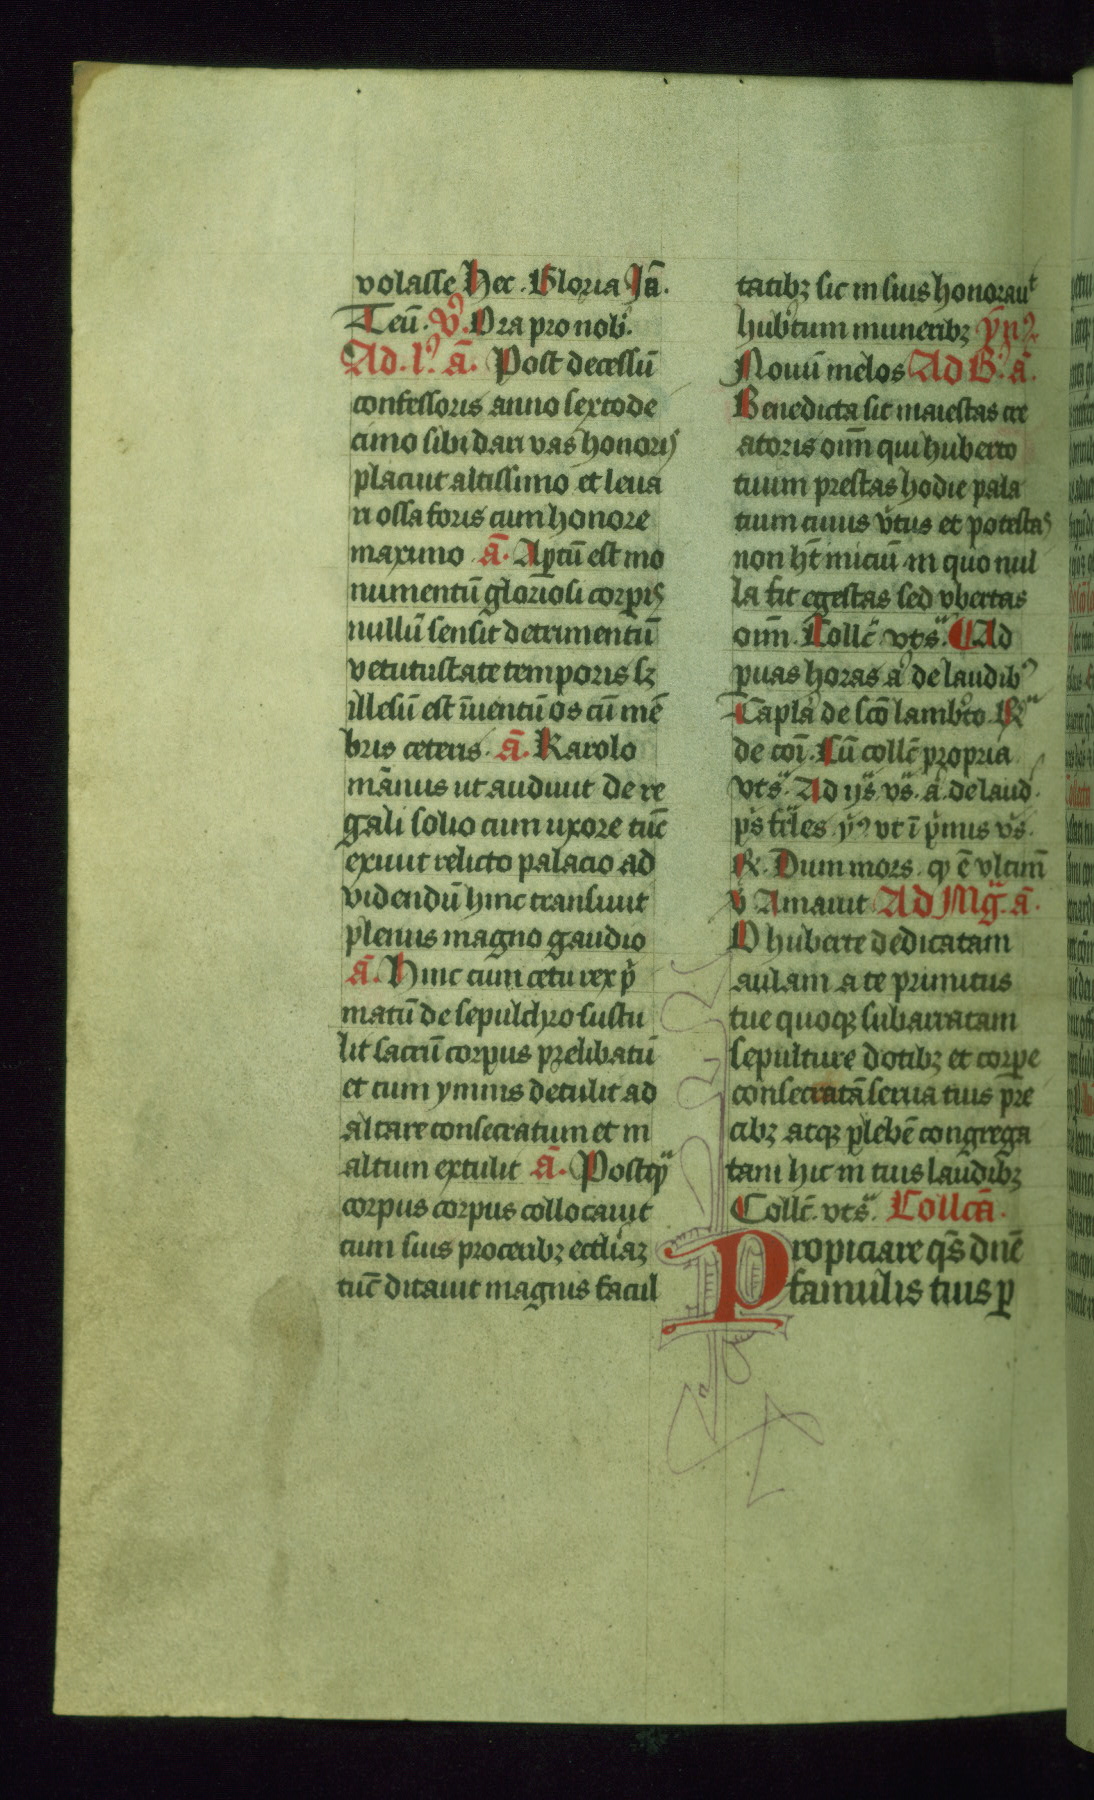 volasse Hec. Gloria Iā.
Teū. V̉. Ora pro nob̉.
Ad. l̉. ā. Post decessū
confessoris anno sexto de
cimo sibi dari vas honoris
placuit altissimo et leua
ri ossa foris cum honore
maximo ā. Aꝑtū est mo
numentū gloriosi corꝑis
nullū sensit detrimentū
vetutustate temporis sꝫ
illesū est īuentū os cū mē
bris ceteris. ā. Karolo
mānus ut audiuit de re
gali solio cum uxore tūc
exiuit relicto palacio ad
videndū hinc transiuit
plenus magno gaudio
ā. Hinc cum cetu rex p̄
matū de sepulchro sustu
lit sacrū corpus prelibatū
et cum ymnis detulit ad
altare consecratum et in
altum extulit ā. Postqͣ
corpus corpus collocauit
cum suis proceribꝫ eccliaꝫ
tūc ditauit magnis facul
tatibꝫ sic in suis honorauͭ
hub̉tum muneribꝫ ẏn̉.
Nouū melos Ad B̉. ā.
Benedicta sit maiestas cre
atoris oīm qui huberto
tuum prestas hodie pala
tium cuius v̉tus et potestas
non ht̄ iniciū in quo nul
la fit egestas sed vbertas
oīm. Collc̄ vts̄. Ad
ꝑuas horas ā de laudib̉
Capla de scō lamb̉to R̉
de coī. Cū collc̄ propria
vts̄. Ad ijs̄. vs̄. ā. de laud.
ps̄ friles. ẏ̉ vt ī p̉mus vs̄.
R. Dum mors. qꝫ ē vltim̄
v̉ Amauit Ad Mḡ. ā.
O huberte dedicatam
aulam a te primitus
tue quoqꝫ subarratam
sepulture dotibꝫ et corꝑe
consecratā serua tuis pre
cibꝫ atqꝫ plebē congrega
tam hic in tuis laudibꝫ
Collc̄. vts̄. Collcā.
Propiciare qs̄ dnē
famulis tuis ꝑ